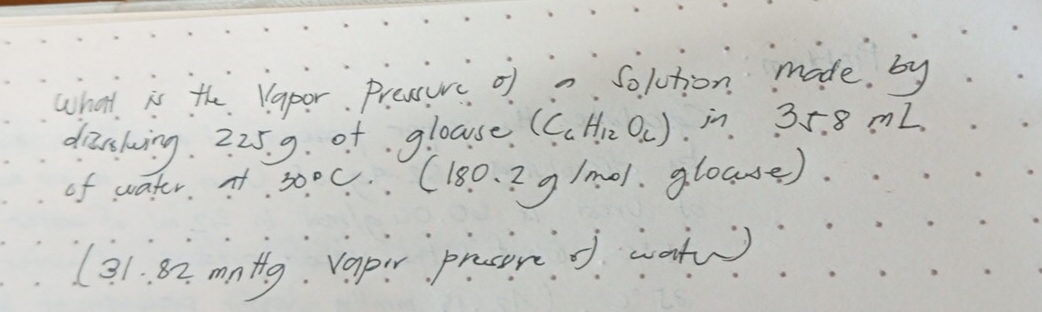 What is the Vapor Pressure of a Solution made by
dissolving 225 g of glocuse (C6H12O6) in 358 mL
of water at 30°C. (180.2 g/mol glocuse)
(31.82 mmHg vapor pressure of water)